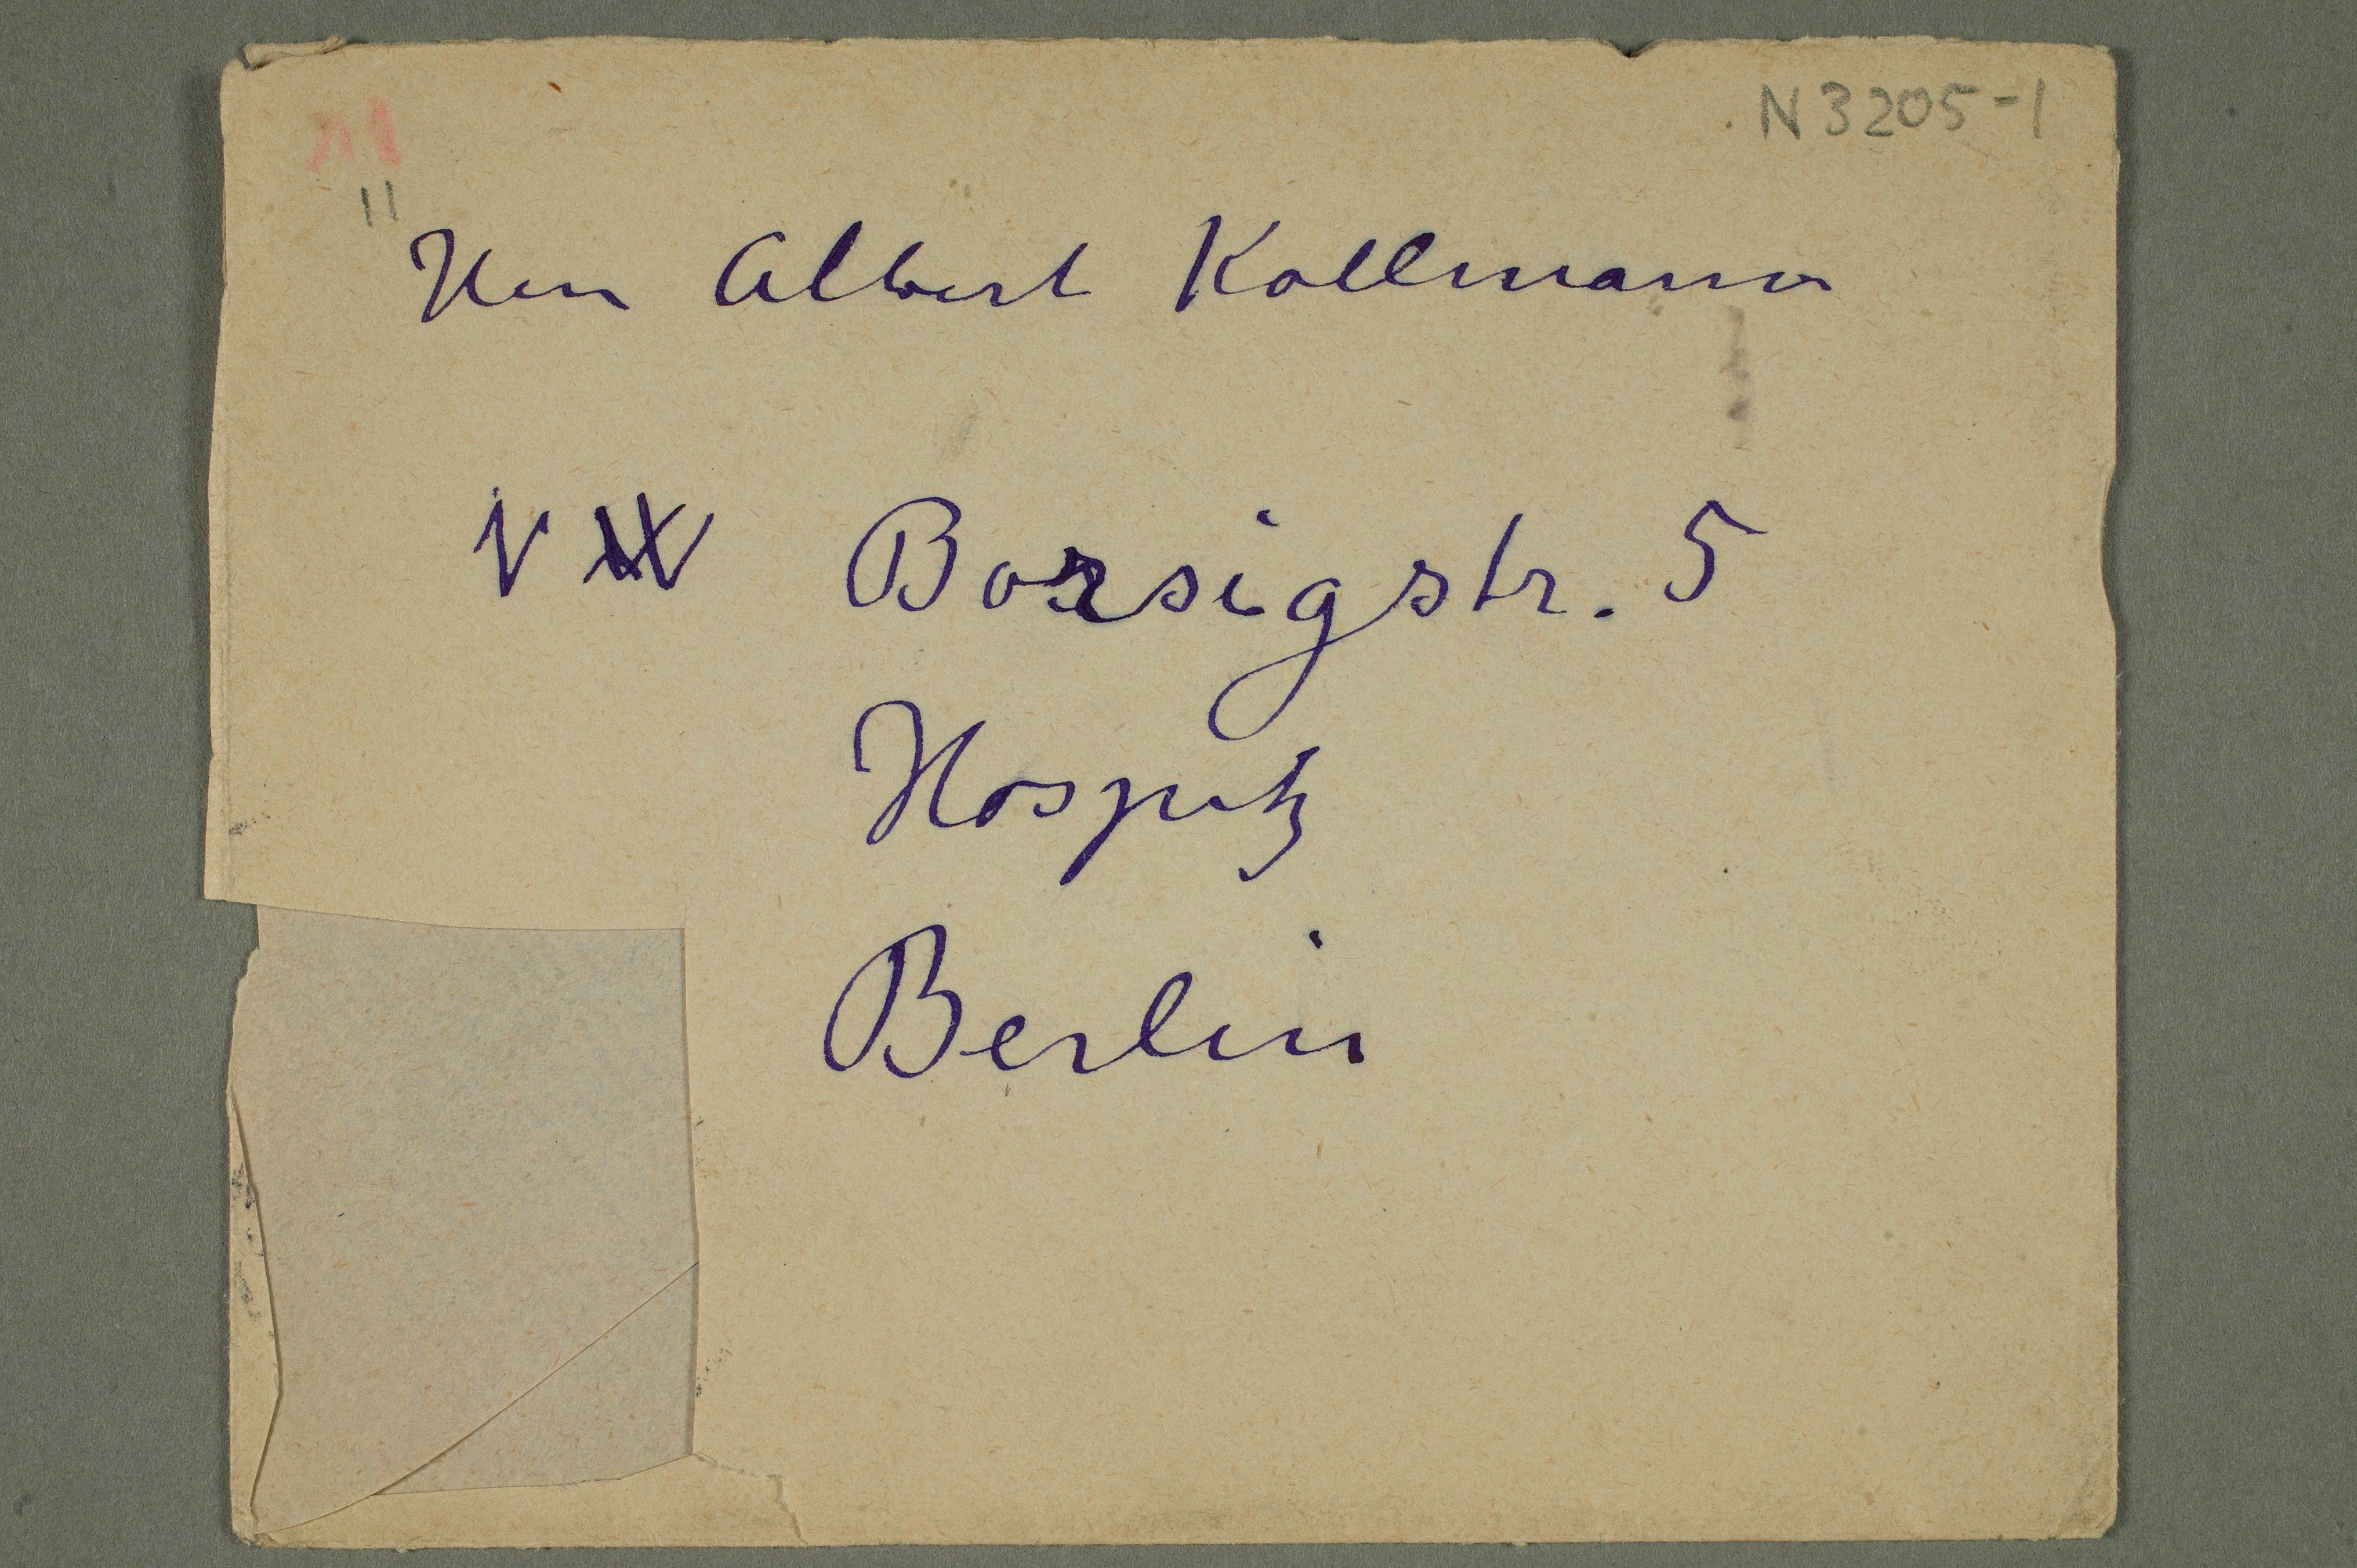 N 3205-1
11
11
Herr Albert Kollmann
N W Borsigstr. 5
Hospitz
Berlin